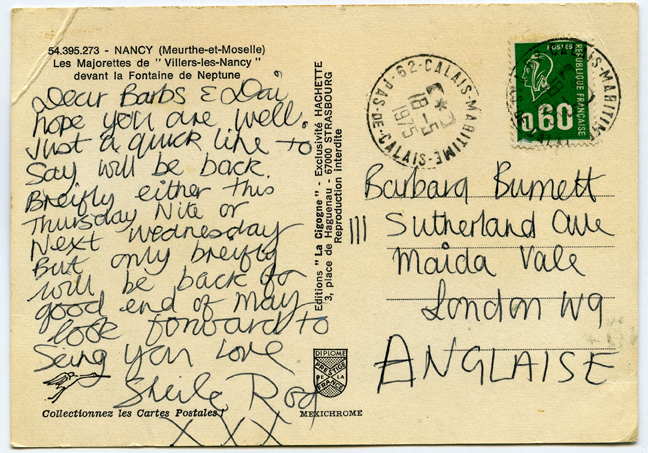 54.395.273 - NANCY (Meurthe-et-Moselle)
Les Majorettes de " Villers-les-Nancy "
devant la Fontaine de Neptune
Dear Barbs & Dai
hope you are well.
Just a quick line to
Say will be back.
Breifly either this
Thursday Nite or
Next Wednesday
But only breifly
will be back for
good end of May
look forward to
Seing you Love
Sheila Rod
XXX
Collectionnez les Cartes Postales !
Editions " La Cigogne " - Exclusivité HACHETTE
3, place de Haguenau - 67000 STRASBOURG
Reproduction interdite
DIPLOME
PRESTIGE
DE LA
FRANCE
MEXICHROME
62-CALAIS-MARITIME
18-5
1975
PAS-DE-CALAIS
POSTES
REPUBLIQUE FRANCAISE
0,60
Barbara Burnett
111 Sutherland Ave
Maida Vale
London W9
ANGLAISE